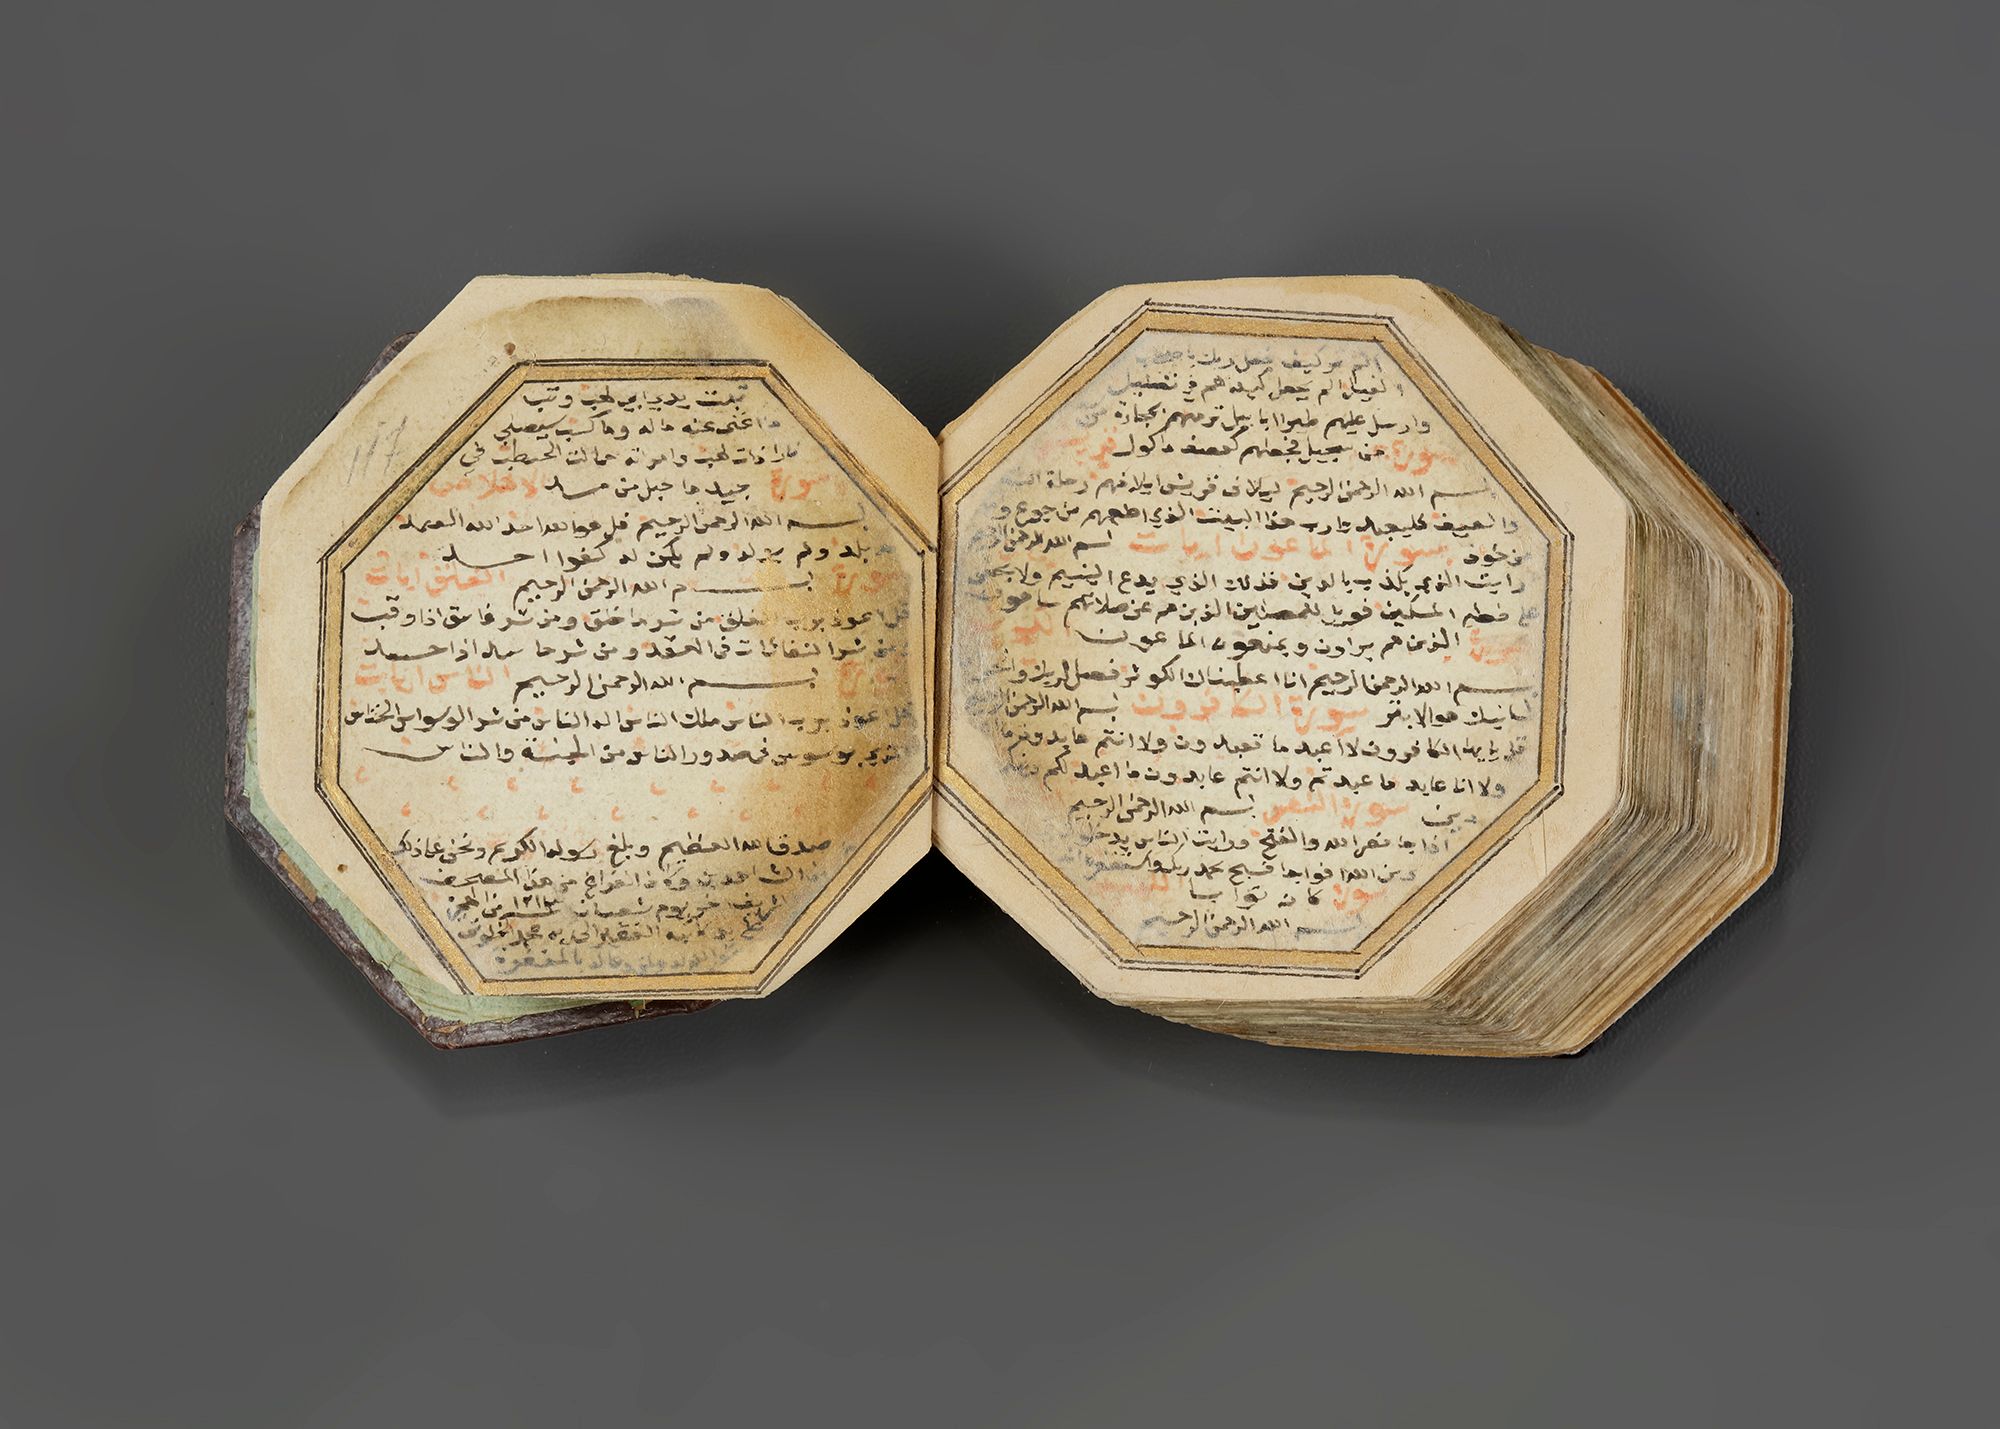 الم تر كيف فعل ربك باصحاب
الفيل الم يجعل كيدهم في تضليل
وارسل عليهم طيرا ابابيل ترميهم بحجارة من
من سجيل فجعلهم كعصف ماكول سورة قريش
بسم الله الرحمن الرحيم ليلاف قريش ايلافهم رحلة الشتا
والصيف فليعبدوا رب هذا البيت الذي اطعمهم من جوع و
من خوف سورة الماعون ايات بسم الله الرحمن الرحيم
رايت الذي يكذب بالدين فذلك الذي يدع اليتيم ولا يحض
على طعام المسكين فويل للمصلين الذين هم عن صلاتهم ساهون
الذين هم يراون ويمنعون الماعون سورة
بسم الله الرحمن الرحيم انا اعطيناك الكوثر فصل لربك وانحر
شانيك هو الابتر سورة الكافرون بسم الله الرحمن الرحيم
قل يايها الكافرون لا اعبد ما تعبدون ولا انتم عابدون ما
ولا انا عابد ما عبدتم ولا انتم عابدون ما اعبد لكم دينكم
دين سورة النصر بسم الله الرحمن الرحيم
اذا جا نصر الله والفتح ورايت الناس يدخلون
دين الله افواجا فسبح بحمد ربك واستغفره انه
كان توابا سورة
بسم الله الرحمن الرحيم
تبت يدا ابي لهب وتب
ما اغنى عنه ماله وما كسب سيصلى
نارا ذات لهب وامراته حمالت الحطب في
جيدها حبل من مسد سورة الاخلاص
بسم الله الرحمن الرحيم قل هو الله احد الله الصمد
لم يلد ولم يولد ولم يكن له كفوا احد
سورة الفلق ايات بسم الله الرحمن الرحيم
قل اعوذ برب الفلق من شر ما خلق ومن شر غاسق اذا وقب
ومن شر النفاثات في العقد ومن شر حاسد اذا حسد
سورة الناس ايات بسم الله الرحمن الرحيم
قل اعوذ برب الناس ملك الناس اله الناس من شر الوسواس الخناس
الذي يوسوس في صدور الناس من الجنة والناس
صدق الله العظيم وبلغ رسوله الكريم ونحن على ذلك
من الشاهدين وكان الفراغ من هذا المصحف
الشريف اخر يوم شعبان ١٢١٢ من الهجرة
كاتبه الفقير الى ربه محمد
غفر الله له ولوالديه بالمغفرة
117